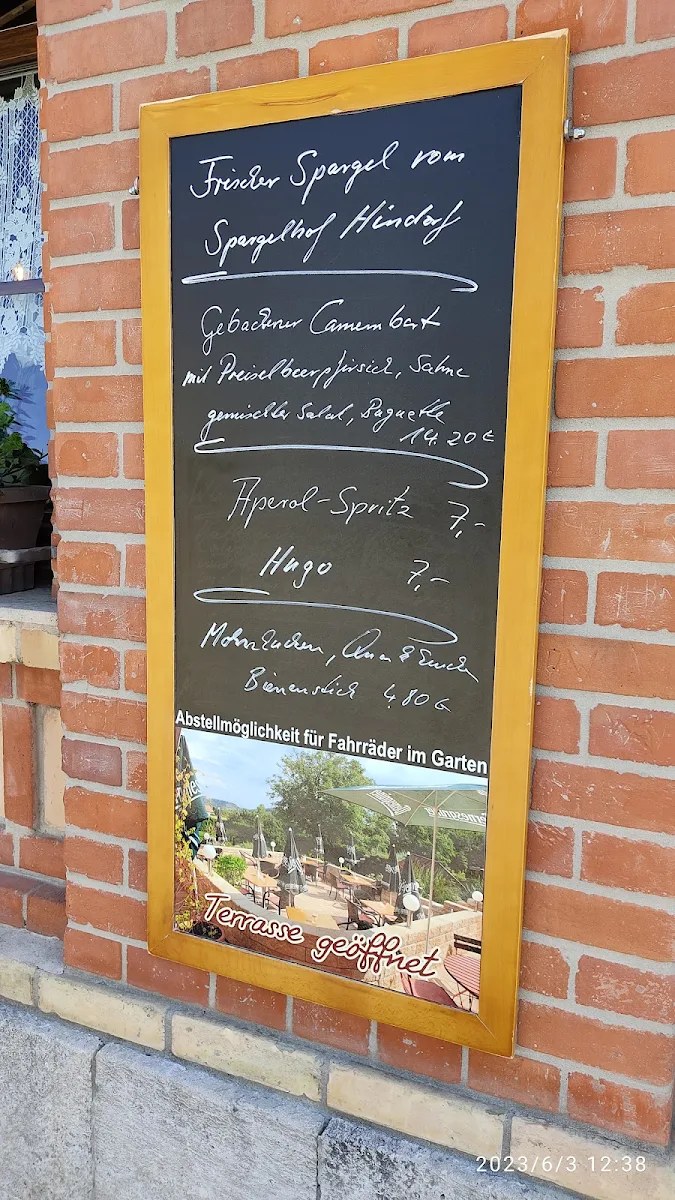 Frischer Spargel vom
Spargelhof Hindorf
Gebackener Camembert
mit Preiselbeerpfirsich, Sahne
gemischter Salat, Baguette
14.20 €
Aperol-Spritz 7,-
Hugo 7,-
Mohnkuchen,
Bienenstich 4,80 €
Abstellmöglichkeit für Fahrräder im Garten
Terrasse geöffnet
2023/6/3 12:38